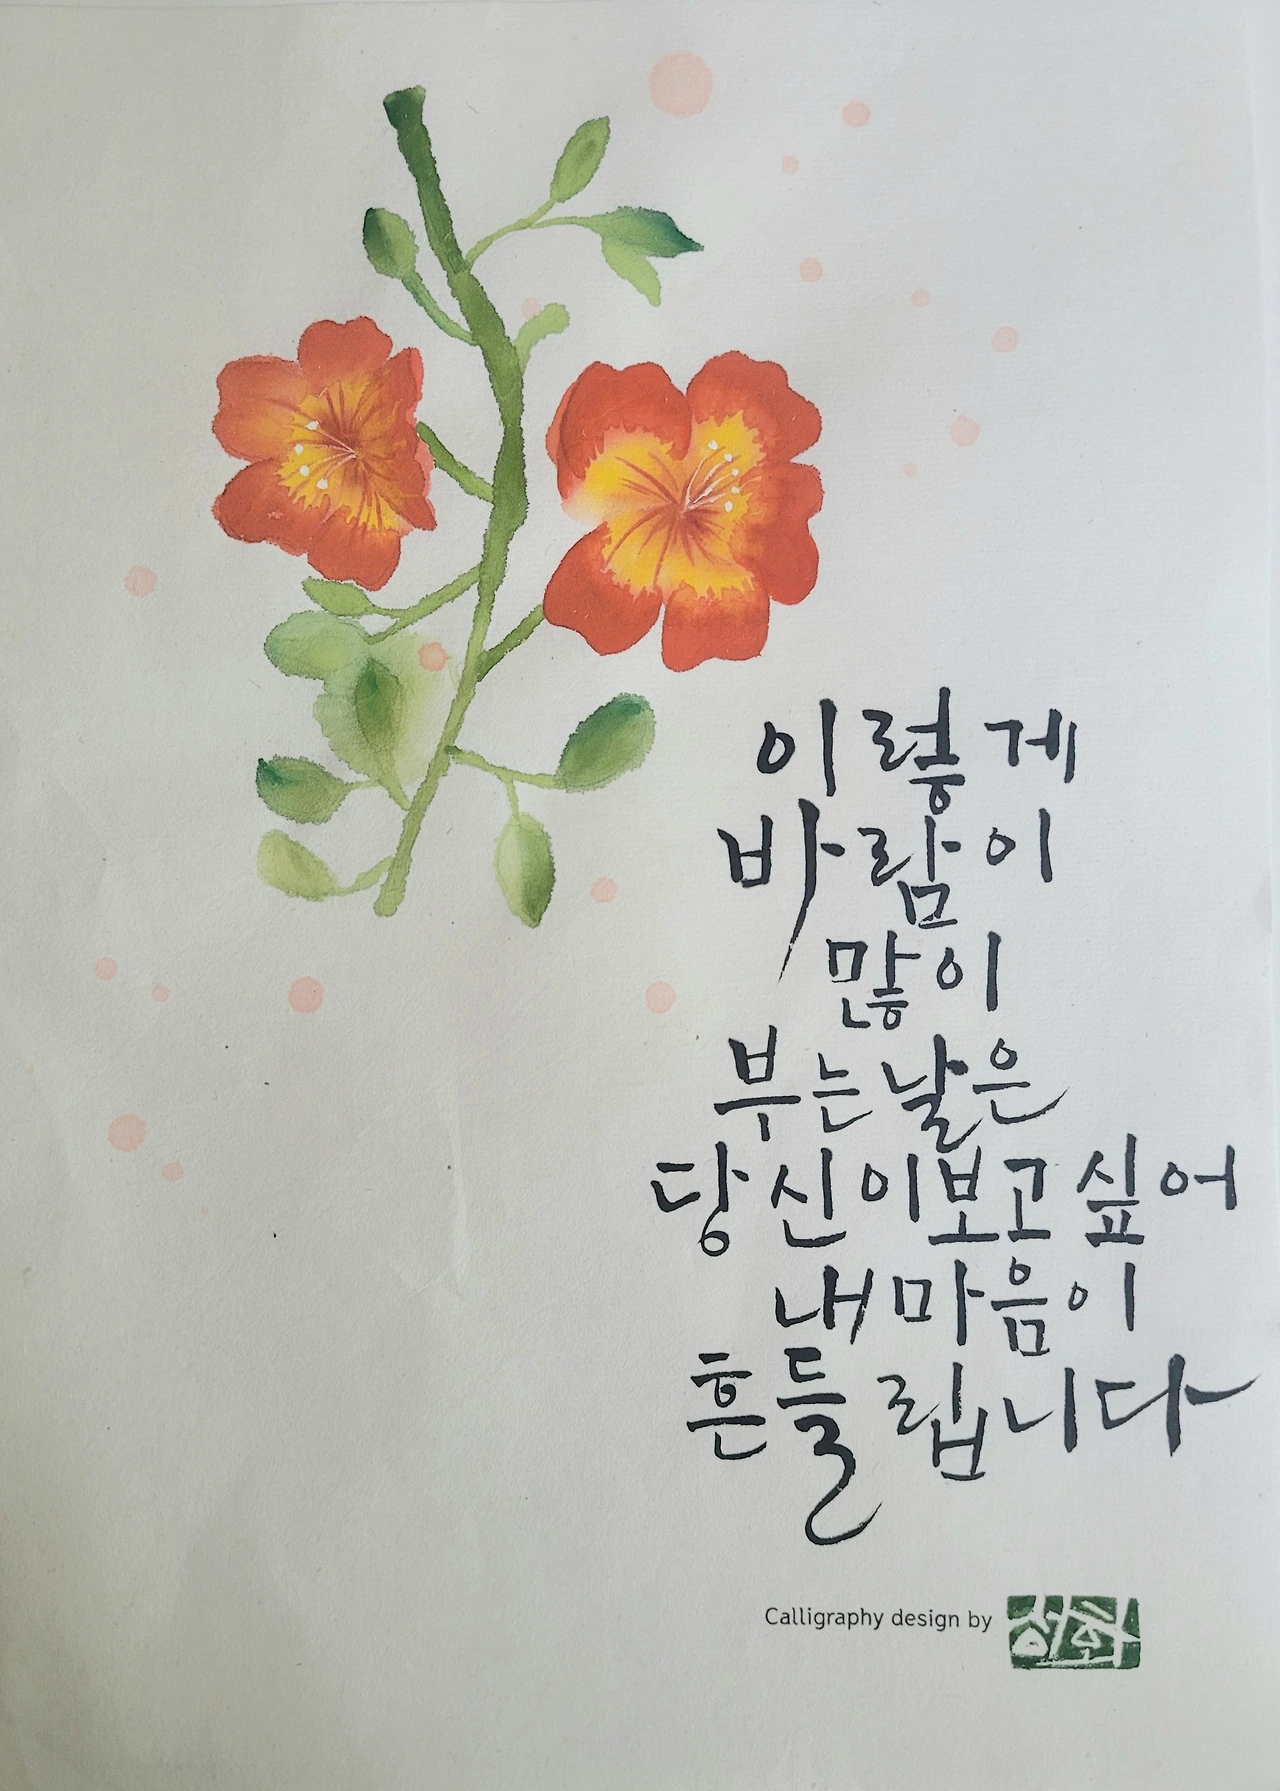 이렇게
바람이
많이
부는 날은
당신이 보고 싶어
내 마음이
흔들립니다
Calligraphy design by